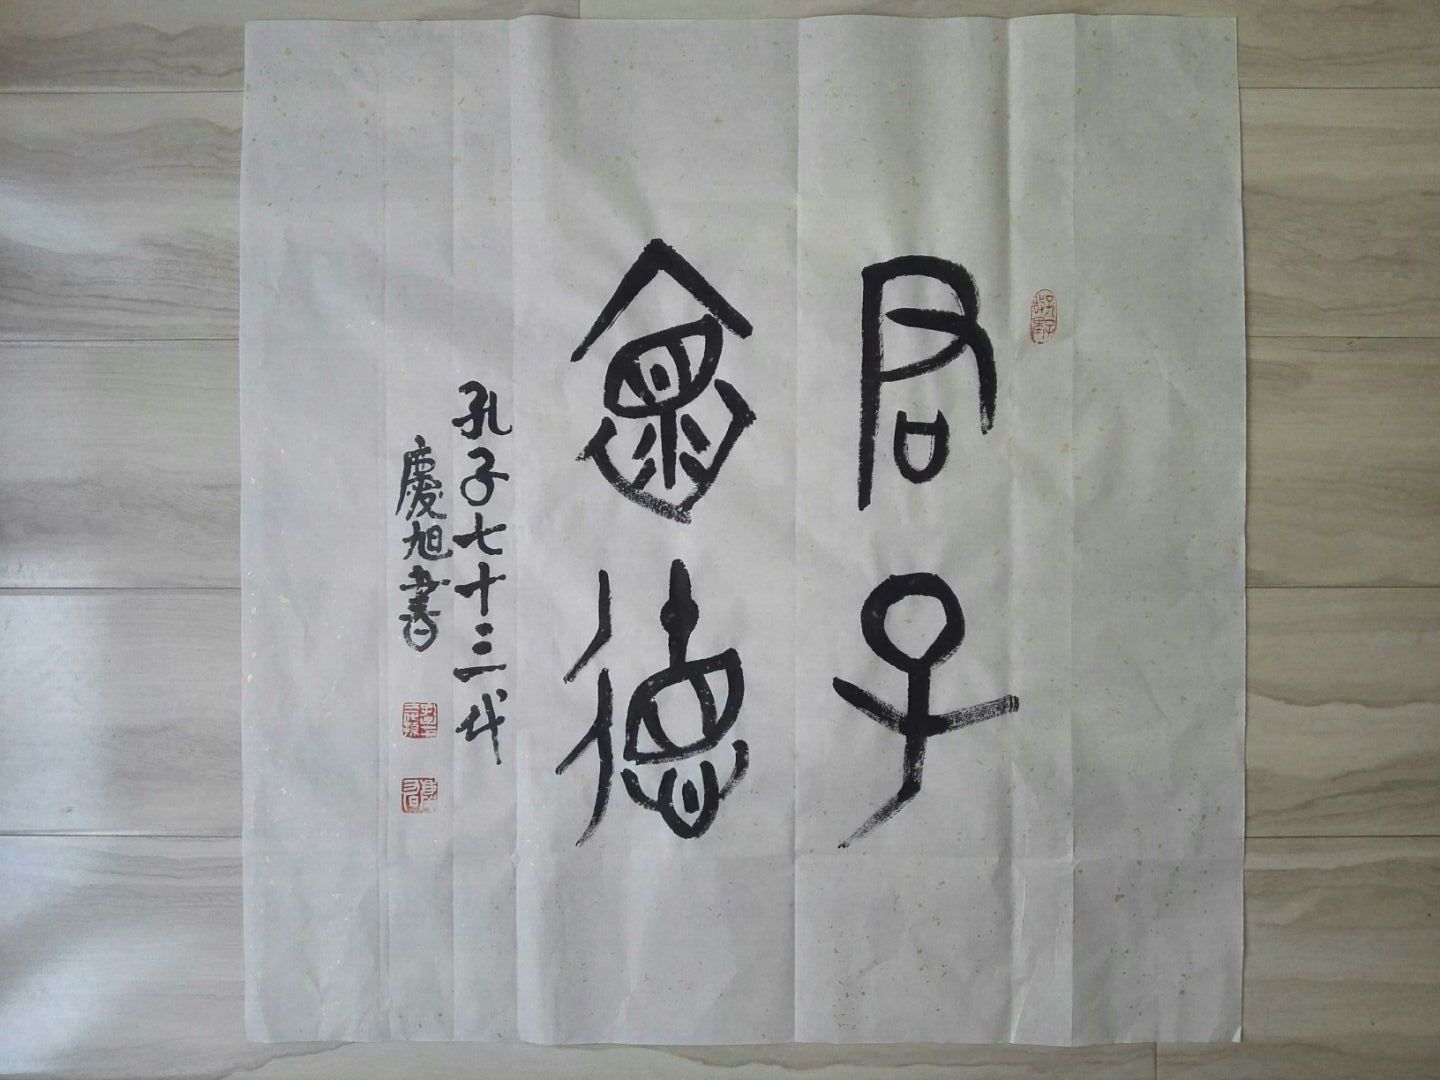 君子
褱德
孔子七十三代
慶旭書